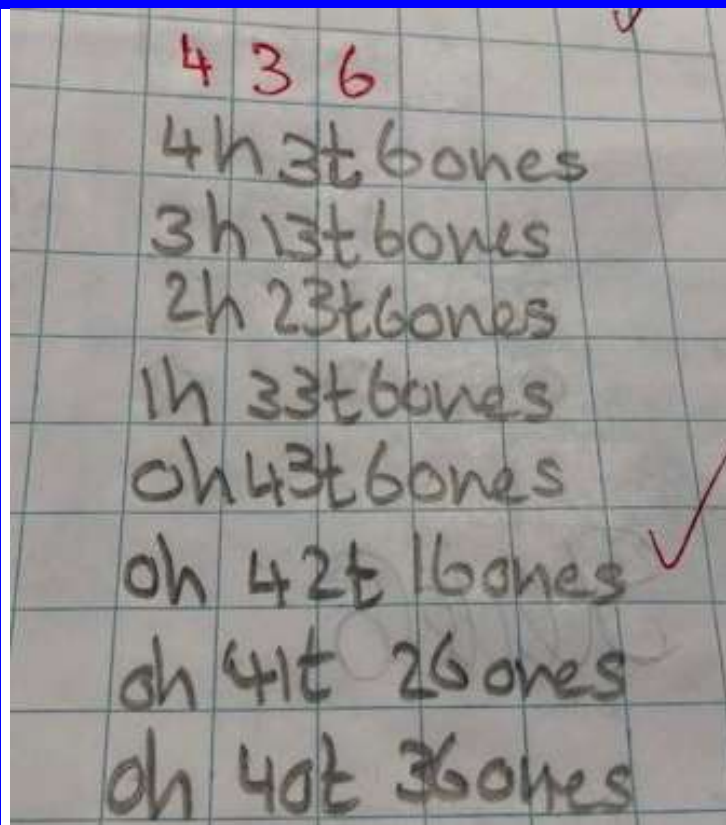 4 3 6
4h 3t 6ones
3h 13t 6ones
2h 23t 6ones
1h 33t 6ones
0h 43t 6ones
0h 42t 16ones
0h 41t 26ones
0h 40t 36ones